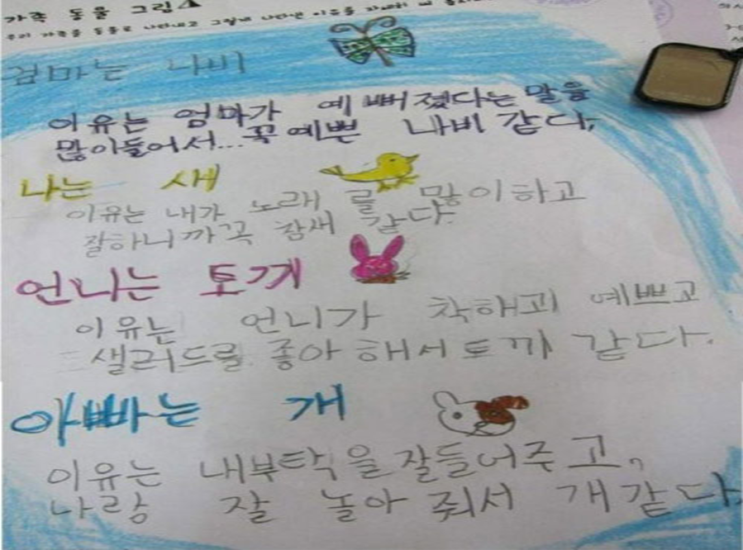 가족 동물 그림
우리 가족을 동물로 나타내고 그렇게 나타낸 이유를
엄마는 나비
이유는 엄마가 예뻐졌다는 말을
많이들어서...꼭예쁜 나비 같다,
나는 새
이유는 내가 노래 를 많이하고
잘하니까꼭 참새 같다.
언니는 토끼
이유는 언니가 착해고 예쁘고
샐러드를 좋아 해서토끼 같다.
아빠는 개
이유는 내부탁을 잘들어주고,
나랑 잘 놀아 줘서 개같다.